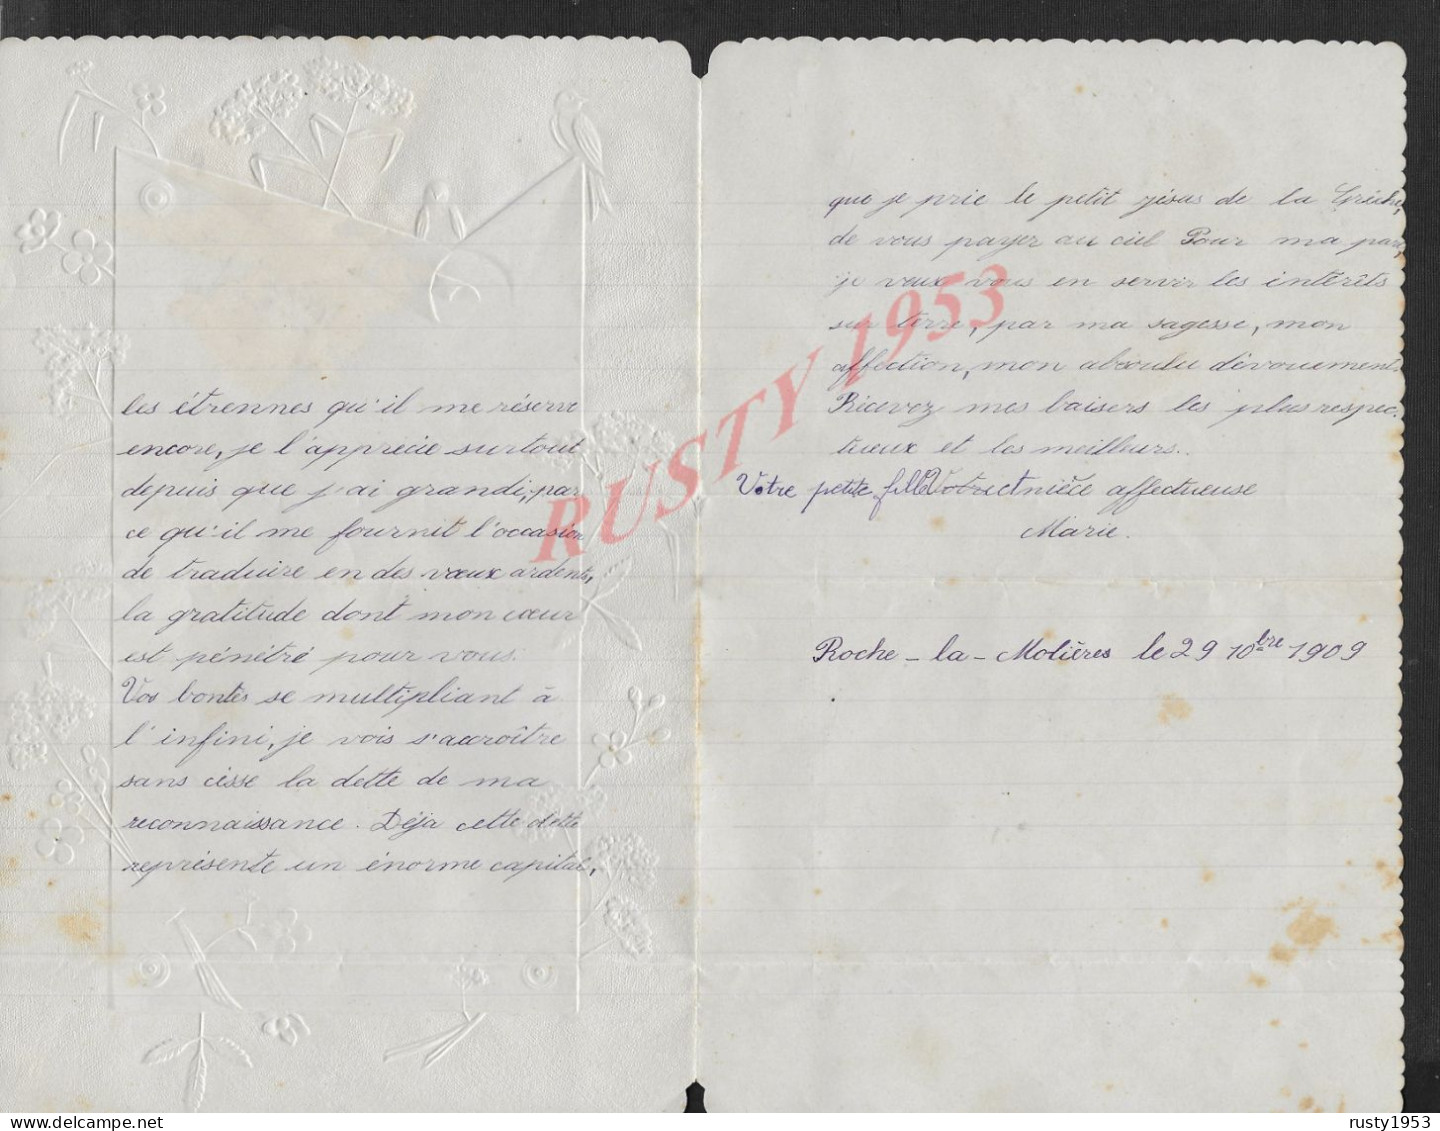 les étrennes qu'il me réserve
encore, je l'apprécie surtout
depuis que j'ai grandi, par
ce qu'il me fournit l'occasion
de traduire en des vœux ardents,
la gratitude dont mon cœur
est pénétré pour vous.
Vos bontés se multipliant à
l'infini, je vois s'accroître
sans cesse la dette de ma
reconnaissance. Déja cette dette
représente un énorme capital,
que je prie le petit jésus de la Crèche,
de vous payer au ciel Pour ma part,
je veux vous en servir les intérêts
sur terre, par ma sagesse, mon
affection, mon absoulu dévouement.
Recevez mes baisers les plus respec-
tueux et les meilleurs..
Votre petite fille et nièce affectueuse
Marie.
Roche-la-Molières le 29 10bre 1909
RUSTY 1953
rusty1953